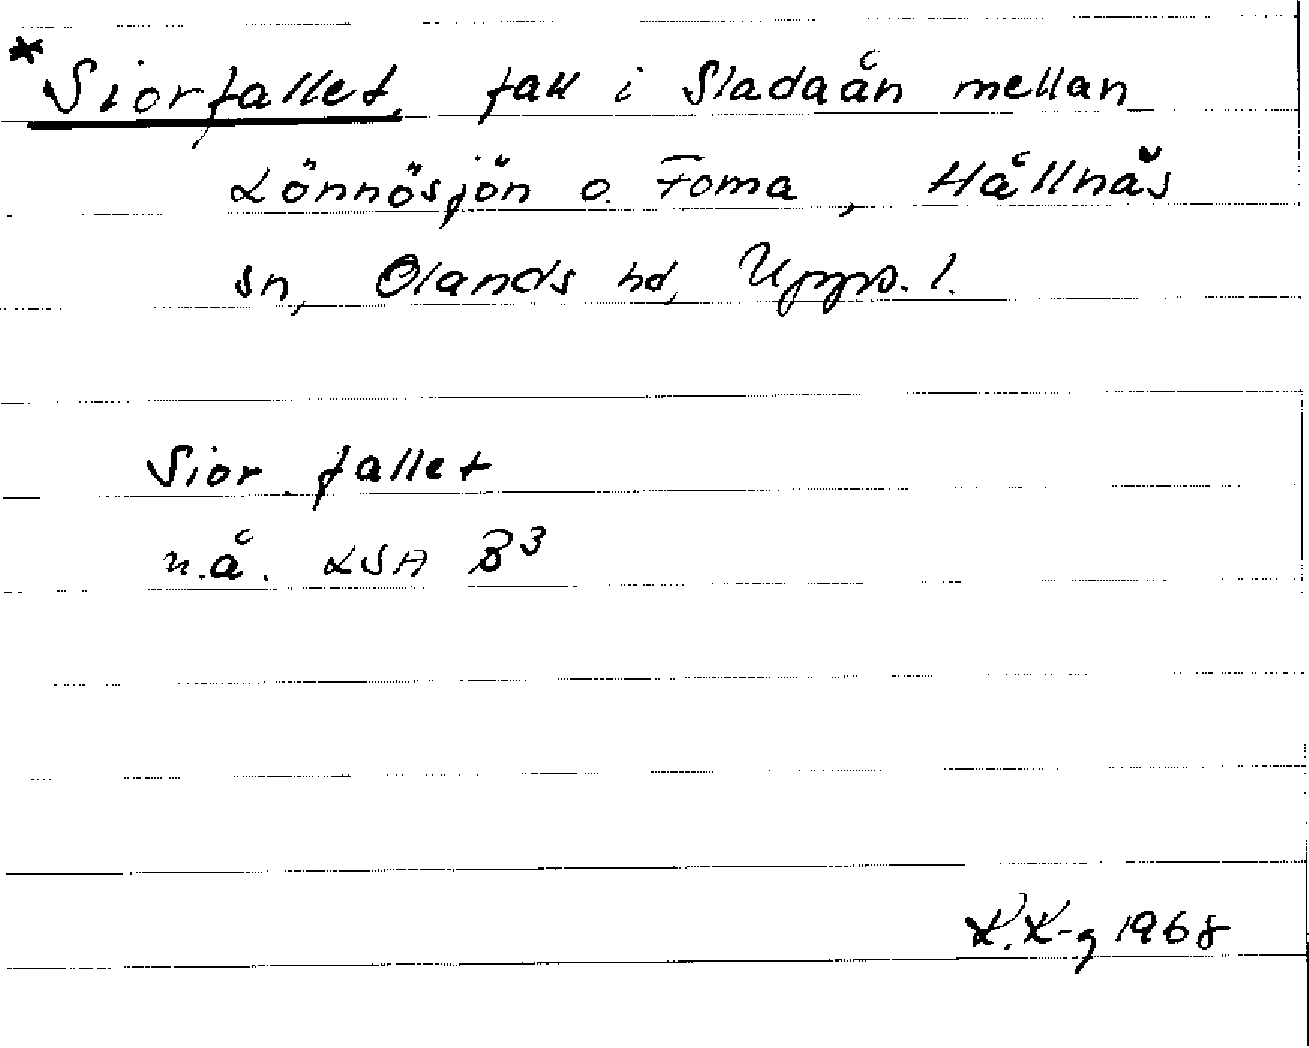 *Siorfallet, fall i Sladaån mellan
Lönnösjön o. Foma, Hållnäs
sn, Olands hd, Upps. l.
Sior fallet
u.å. LSA B³
K.K-g 1968